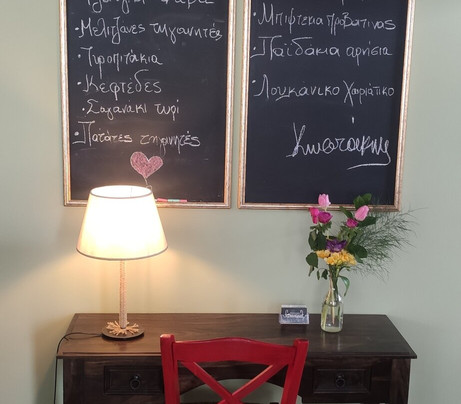 ·Μελιτζάνες τηγανητές
·Τυροπιτάκια
·Κεφτέδες
·Σαγανάκι τυρί
·Πατάτες τηγανητές
·Μπιφτέκια προβατίνας
·Παϊδάκια αρνίσια
·Λουκάνικο χωριάτικο